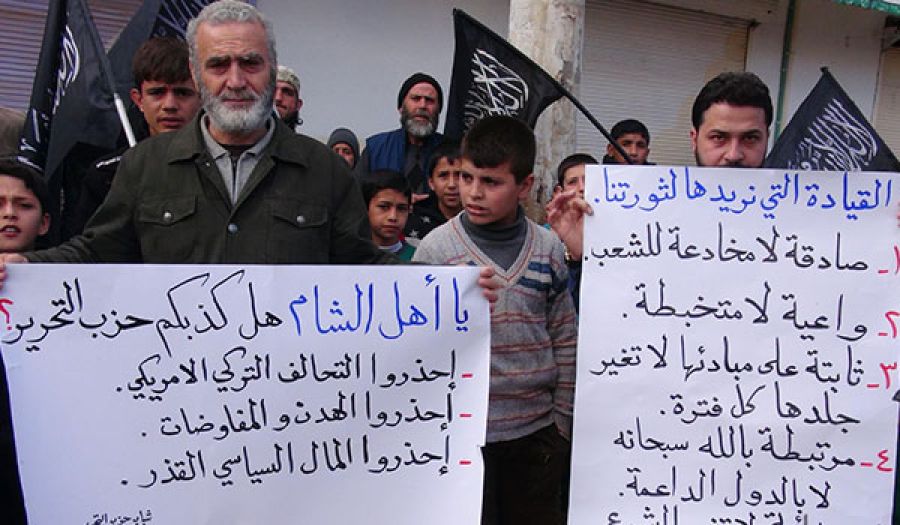 يا أهل الشام هل كذبكم حزب التحرير؟
- إحذروا التحالف التركي الامريكي.
- إحذروا الهدن و المفاوضات .
- إحذروا المال السياسي القذر .
شباب حزب التحرير
القيادة التي نريدها لثورتنا.
١- صادقة لا مخادعة للشعب.
٢- واعية لا متخبطة .
٣- ثابتة على مبادئها لا تغير
جلدها كل فترة.
٤- مرتبطة بالله سبحانه
لا بالدول الداعمة.